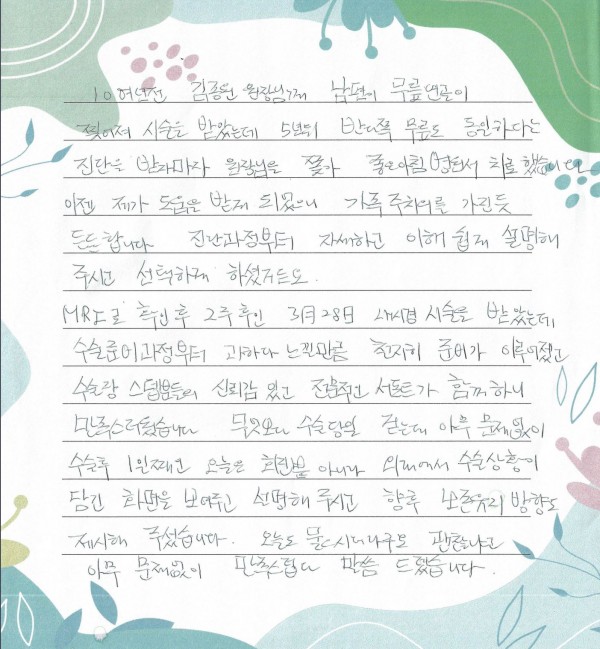 10여년전 김종원 원장님께 남편이 무릎연골이
찢어져 시술을 받았는데 5년뒤 반대쪽 무릎도 동일하다는
진단을 받자마자 원장님을 쫓아 좋은아침 병원에서 치료했습니다
이젠 제가 도움을 받게 되었으니 가족주치의를 가진듯
든든합니다 진단과정부터 자세하고 이해 쉽게 설명해
주시고 선택하게 하셨거든요.
MRI로 확인후 2주후인 3月28日 내시경 시술을 받았는데
수술준비과정부터 과하다 느낄만큼 천저히 준비가 이루어졌고
수술장 스텝분들의 신뢰감 있고 전문적인 서포트가 함께하니
만족스러웠습니다 무엇보다 수술당일 걷는데 아무 문제없이
수술후 1일째인 오늘은 회진뿐 아니라 외래에서 수술상황이
담긴 화면을 보여주고 설명해 주시고 향후 보존유지 방향도
제시해 주셨습니다. 오늘도 묻시더라구요 괜찮냐고
아무 문제없이 만족스럽다 말씀 드렸습니다.